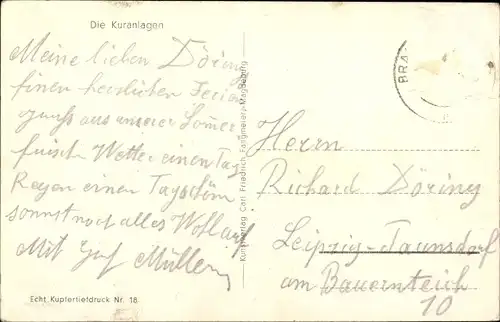 Die Kuranlagen
Meine lieben Döring
einen herzlichen Ferien
gruß aus unserer Sommer
frische Wetter einen Tag
Regen einen Tag schön
sonst noch alles Wohlauf
Mit Gruß Müller
Echt Kupfertiefdruck Nr. 18
Kunstverlag Carl Friedrich Fangmeier, Magdeburg
BRA
Herrn
Richard Döring
Leipzig-Taunsdorf
am Bauernteich
10